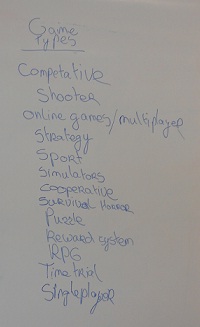 Game
types
Competative
Shooter
online games/multiplayer
Strategy
Sport
Simulators
Cooperative
Survival Horror
Puzzle
Reward system
RPG
Time trial
Singleplayer